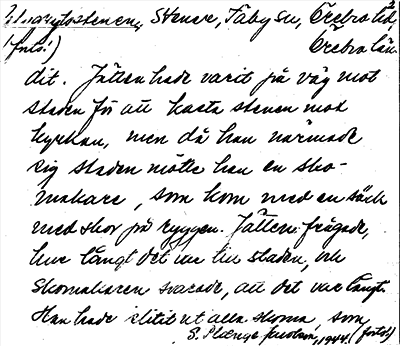 Stenare, Täby sn, Örebro lfd,
(forts.) Örebro län
dit. Jätten hade varit på väg mot
staden för att kasta stenen mot
kyrkan, men då han närmade
sig staden mötte han en sko-
makare, som kom med en säck
med skor på ryggen. Jätten frågade,
hur långt det var till staden, och
skomakaren svarade, att det var långt.
Han hade slitit ut alla skorna som
S. 1944. (forts.)